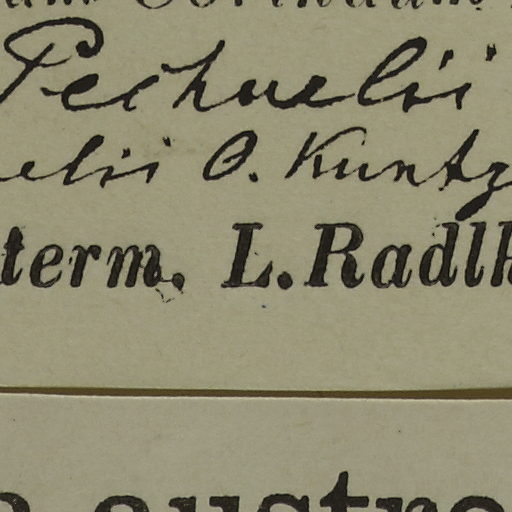 Pechuelii
elii O. Kuntz
term. L. Radlk
austro